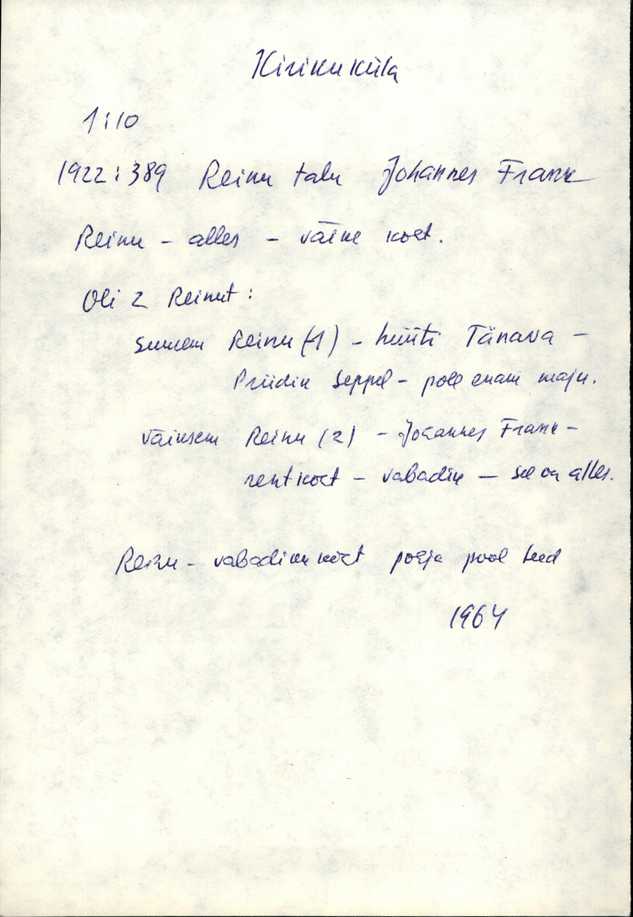 Kirikuküla
1:10
1922:389 Reinu talu Johannes Frank
Reinu - alles - väike koht.
Oli 2 Reinut:
suurem Reinu (1) - hüüti Tänava -
Priidiku Seppel - pole enam maju.
väiksem Reinu (2) - Johannes Frank -
rentkoht - vabadik - see on alles.
Reinu - vabadikukoht põhja pool teed
1964